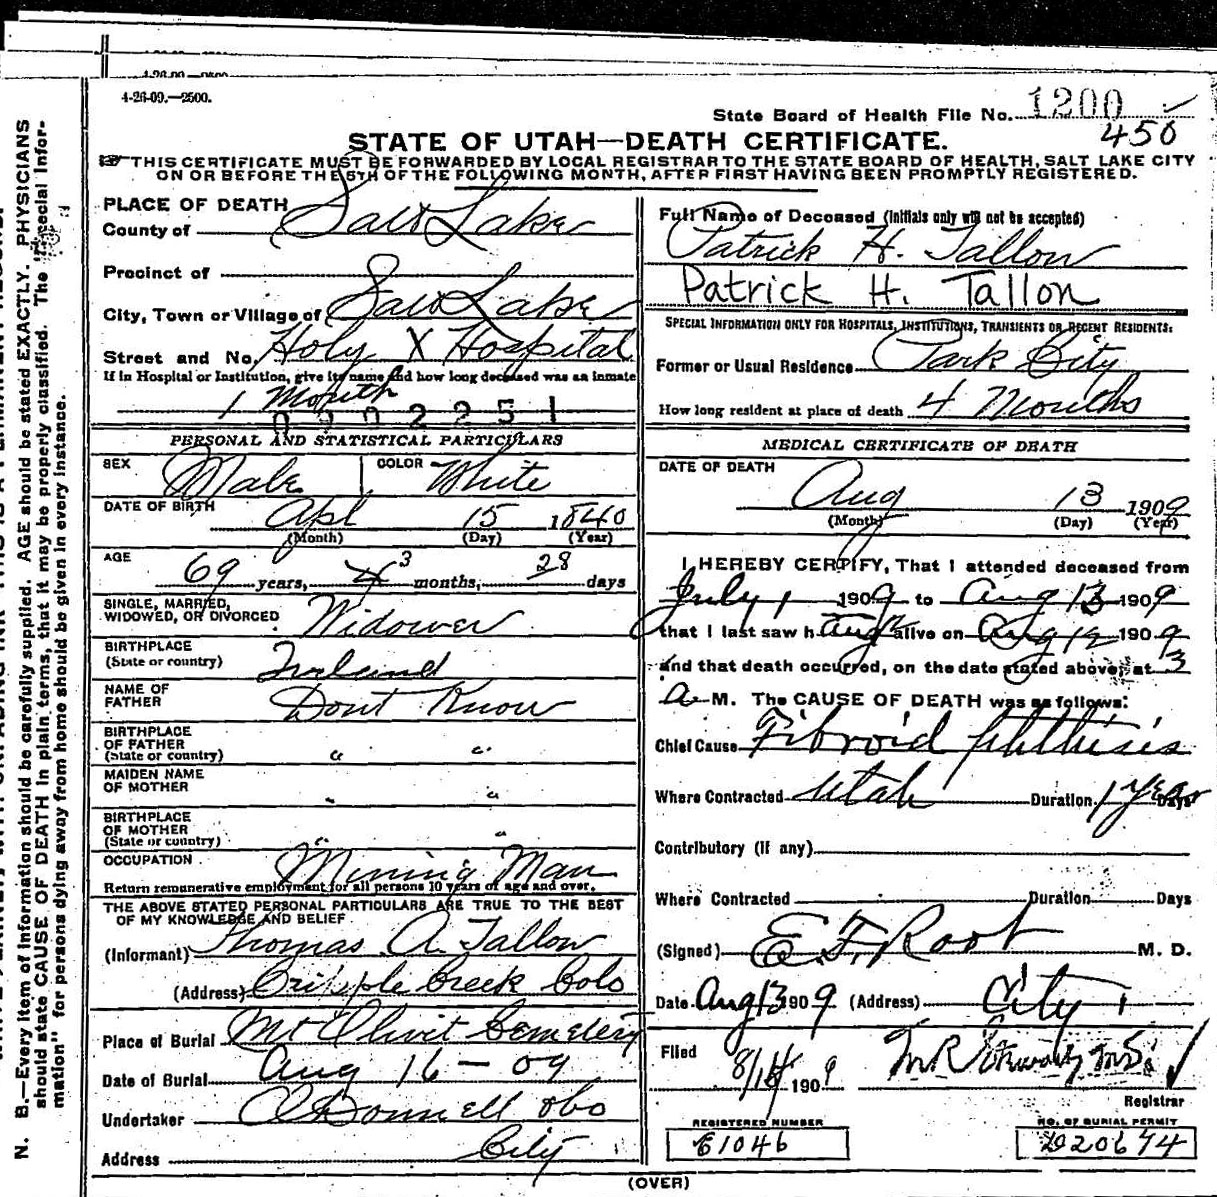 4-26-09.—2500.
4-26-09.—2500.
State Board of Health File No. 1200
450
STATE OF UTAH—DEATH CERTIFICATE.
THIS CERTIFICATE MUST BE FORWARDED BY LOCAL REGISTRAR TO THE STATE BOARD OF HEALTH, SALT LAKE CITY
ON OR BEFORE THE 5TH OF THE FOLLOWING MONTH, AFTER FIRST HAVING BEEN PROMPTLY REGISTERED.
PLACE OF DEATH
County of Salt Lake
Precinct of
City, Town or Village of Salt Lake
Street and No. Holy X Hospital
If in Hospital or Institution, give its name and how long deceased was an inmate
1 Month
0002251
PERSONAL AND STATISTICAL PARTICULARS
SEX Male COLOR White
DATE OF BIRTH Apl 15 1840
(Month) (Day) (Year)
AGE 69 years, 4 3 months, 28 days
SINGLE, MARRIED,
WIDOWED, OR DIVORCED Widower
BIRTHPLACE
(State or country) Ireland
NAME OF
FATHER Dont Know
BIRTHPLACE
OF FATHER
(State or country) " "
MAIDEN NAME
OF MOTHER " "
BIRTHPLACE
OF MOTHER
(State or country) " "
OCCUPATION Mining Man
Return remunerative employment for all persons 10 years of age and over.
THE ABOVE STATED PERSONAL PARTICULARS ARE TRUE TO THE BEST
OF MY KNOWLEDGE AND BELIEF
(Informant) Thomas A. Tallon
(Address) Cripple Creek Colo
Place of Burial Mt Olivit Cemetery
Date of Burial Aug 16 - 09
Undertaker O'Donnell &Co
Address City
Full Name of Deceased (Initials only will not be accepted)
Patrick H. Tallon
Patrick H. Tallon
SPECIAL INFORMATION ONLY FOR HOSPITALS, INSTITUTIONS, TRANSIENTS OR RECENT RESIDENTS:
Former or Usual Residence Park City
How long resident at place of death 4 Months
MEDICAL CERTIFICATE OF DEATH
DATE OF DEATH
Aug 13 1909
(Month) (Day) (Year)
I HEREBY CERTIFY, That I attended deceased from
July 1 1909 to Aug 13 1909
that I last saw h Aug 12 alive on Aug 12 1909
and that death occurred, on the date stated above, at 3
a M. The CAUSE OF DEATH was as follows:
Chief Cause Fibroid phthisis
Where Contracted Utah Duration 1 year Days
Contributory (if any)
Where Contracted Duration Days
(Signed) E. F. Root M. D.
Date Aug 13 1909 (Address) City
Filed 8/14 1909
Registrar
REGISTERED NUMBER
E1046
NO. OF BURIAL PERMIT
(OVER)
N. B.—Every item of information should be carefully supplied. AGE should be stated EXACTLY. PHYSICIANS
should state CAUSE OF DEATH in plain terms, that it may be properly classified. The "Special Infor-
mation" for persons dying away from home should be given in every instance.